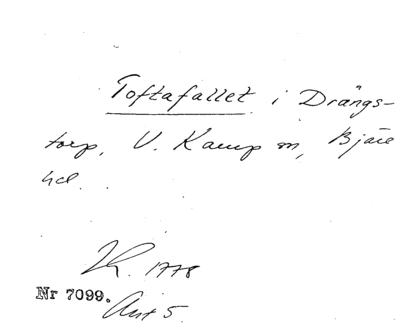 Toftafallet i Drängs-
torp, V. Karup sn, Bjäre
hd.
1778
Nr 7099.
Akt 5